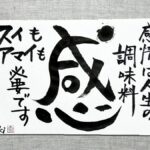 感情は人生の
調味料
感
スイも
アマイも
必要です